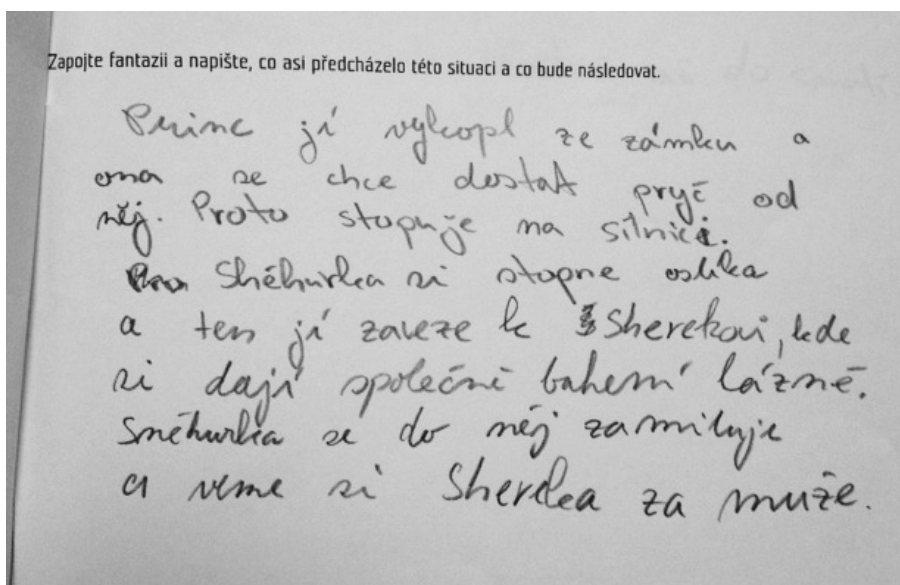 Zapojte fantazii a napište, co asi předcházelo této situaci a co bude následovat.
Princ jí vykopl ze zámku a
ona se chce dostat pryč od
něj. Proto stopuje na silnici.
Sněhurka si stopne oslíka
a ten jí zaveze k Sherekovi, kde
si dají společné bahení lázně.
Sněhurka se do něj zamiluje
a veme si Shereka za muže.